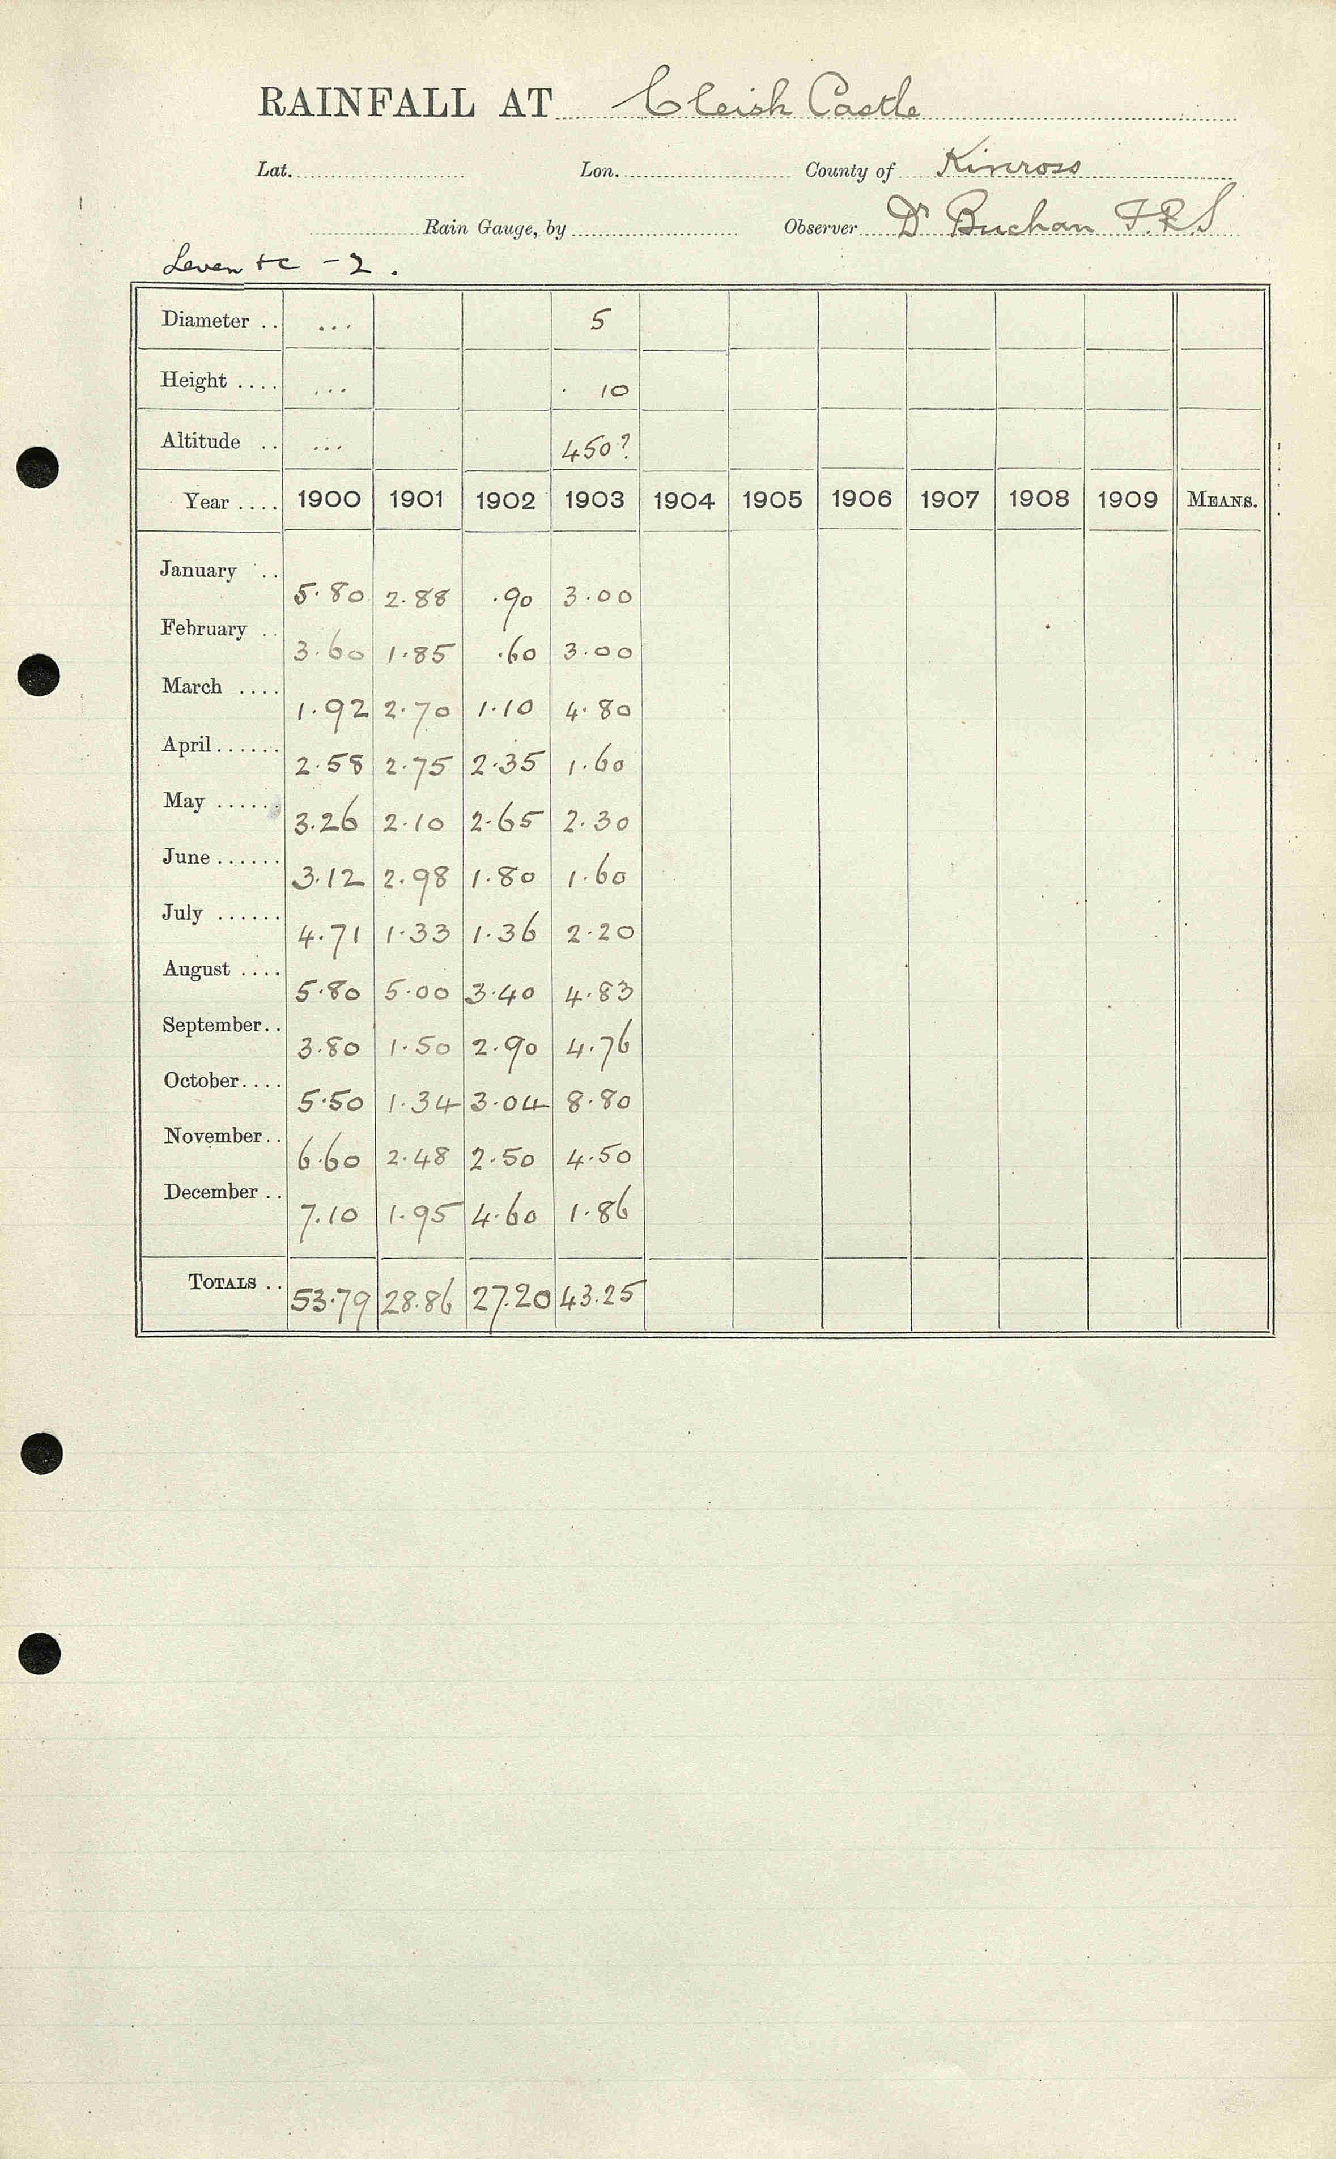 RAINFALL AT Cleish Castle
Lat. Lon. County of Kinross
Rain Gauge, by Observer Dr Buchan F.R.S
Leven &c - 2.
Diameter .. ... 5
Height .... ... 10
Altitude .. ... 450?
Year .... 1900 1901 1902 1903 1904 1905 1906 1907 1908 1909 MEANS.
January .. 5.80 2.88 .90 3.00
February .. 3.60 1.85 .60 3.00
March .... 1.92 2.70 1.10 4.80
April ...... 2.58 2.75 2.35 1.60
May ...... 3.26 2.10 2.65 2.30
June ...... 3.12 2.98 1.80 1.60
July ...... 4.71 1.33 1.36 2.20
August .... 5.80 5.00 3.40 4.83
September.. 3.80 1.50 2.90 4.76
October.... 5.50 1.34 3.04 8.80
November.. 6.60 2.48 2.50 4.50
December .. 7.10 1.95 4.60 1.86
TOTALS .. 53.79 28.86 27.20 43.25